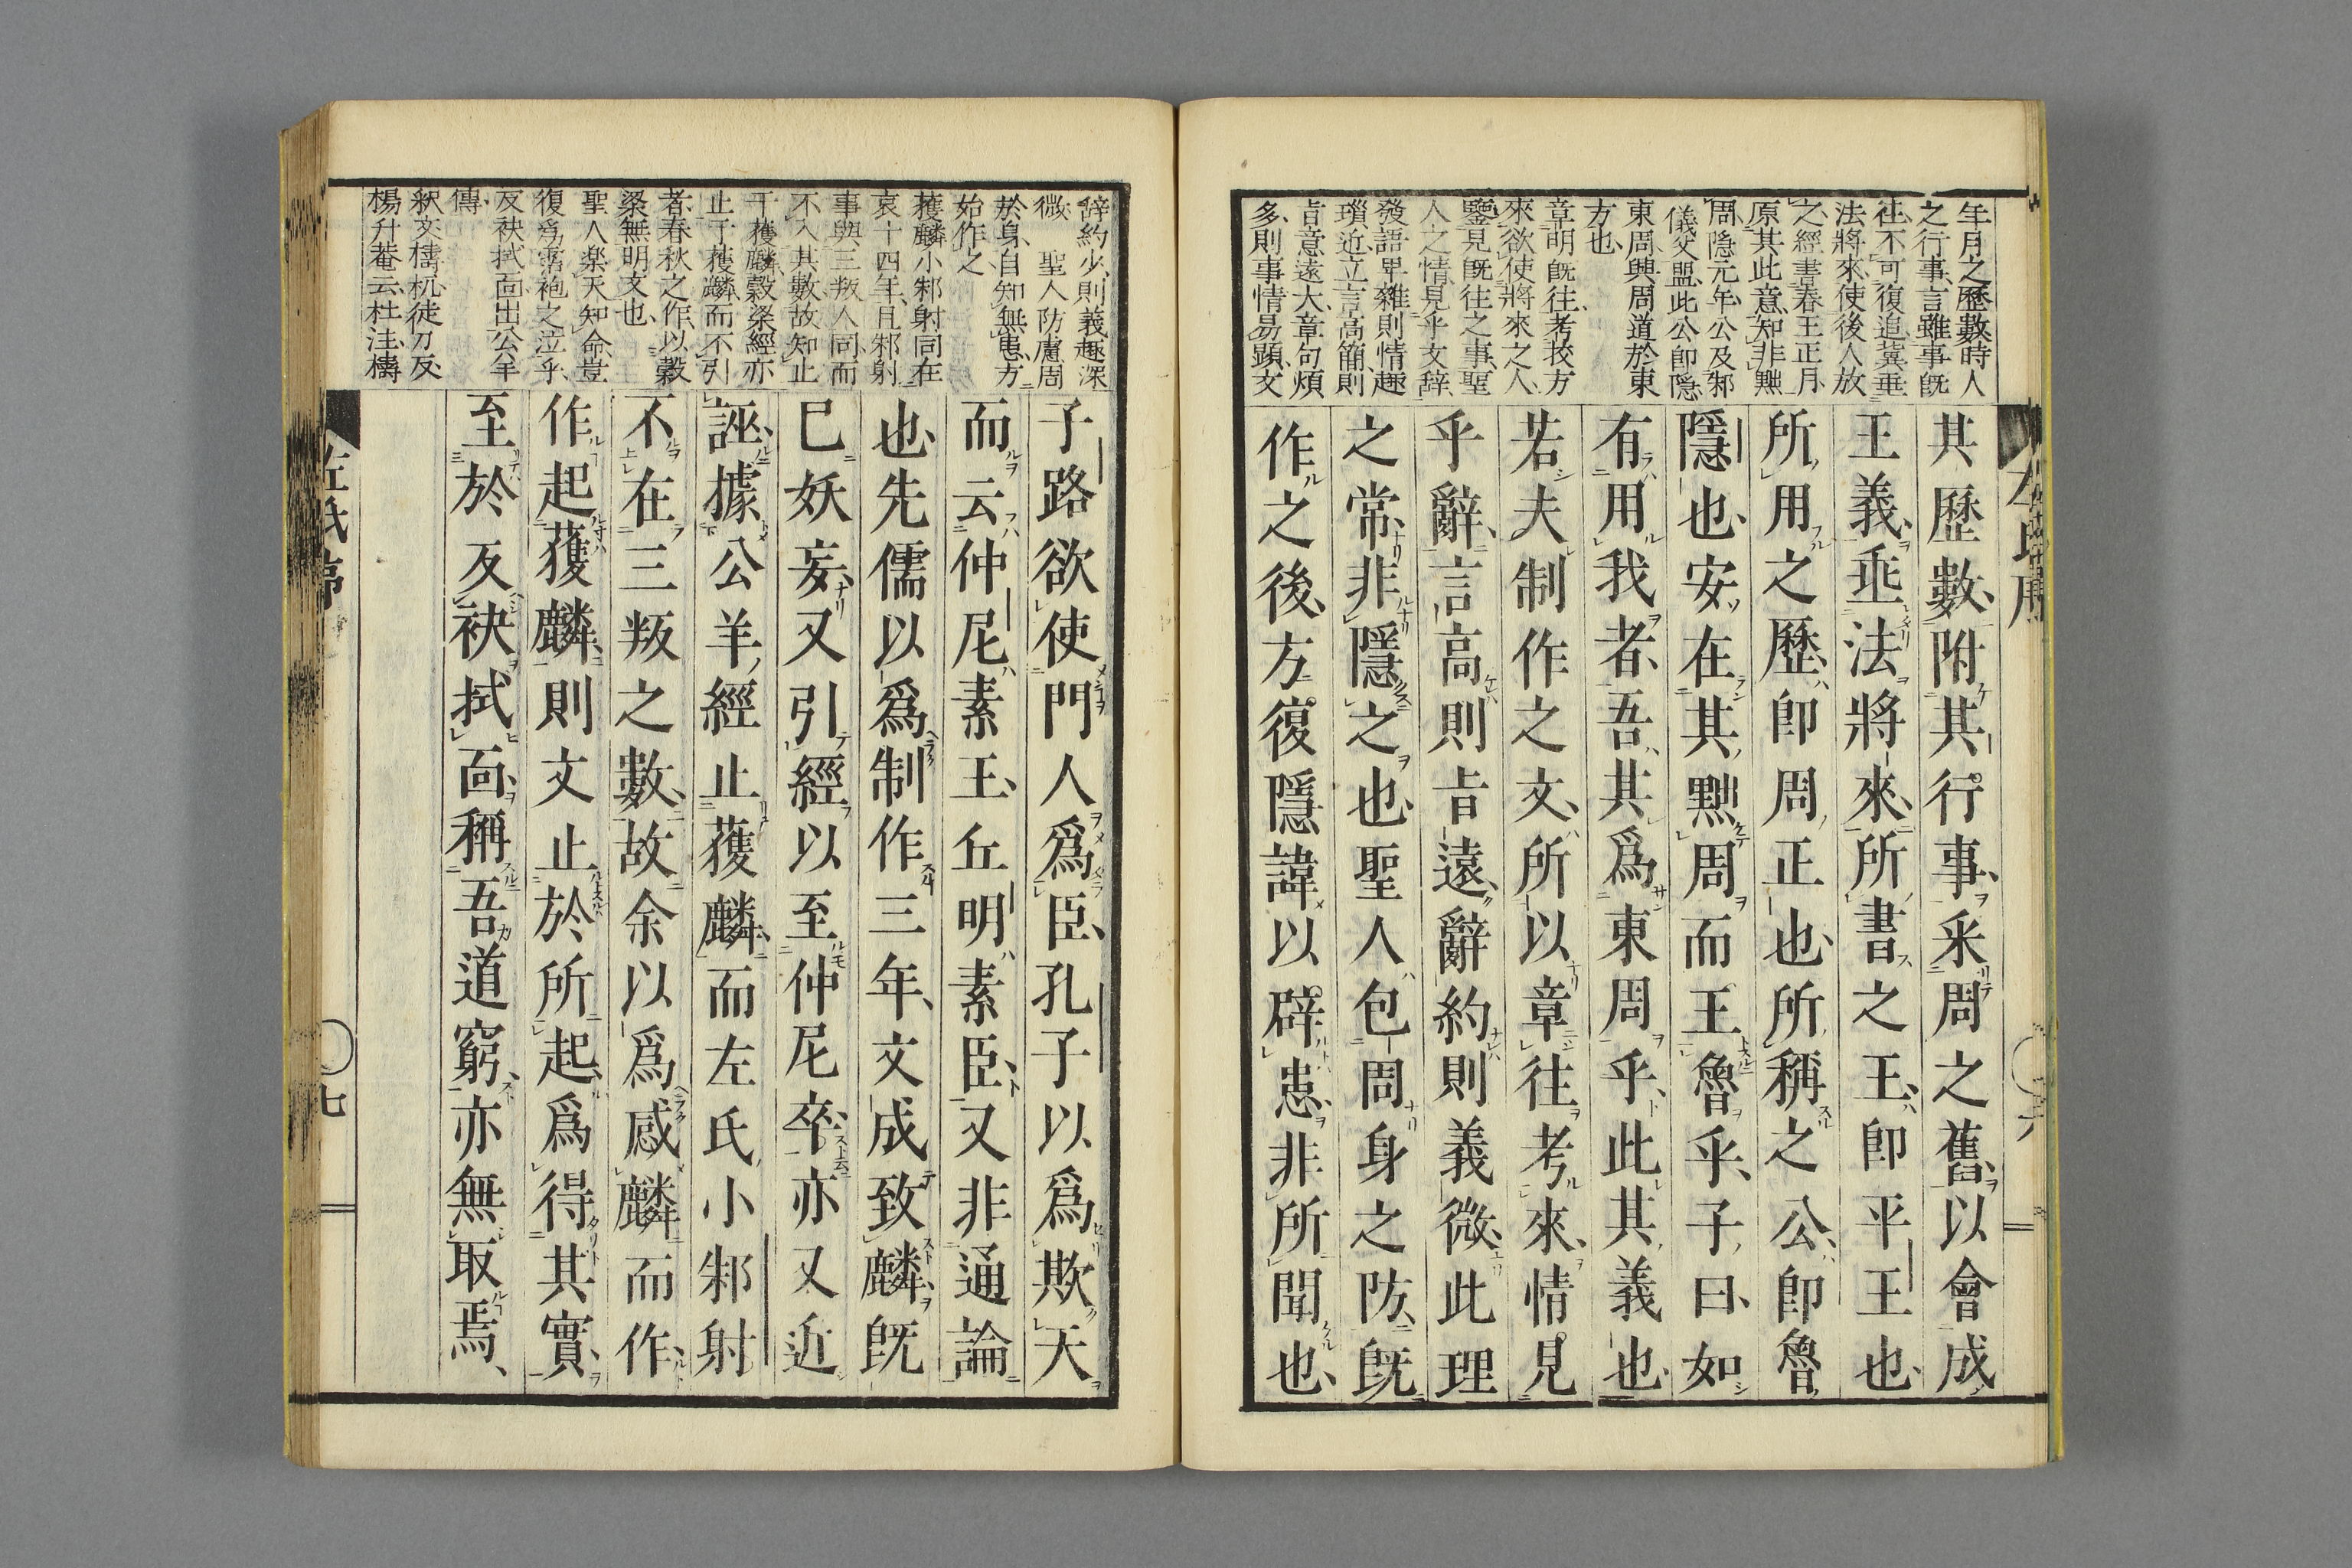 年月之歷數時人
之行事言雖事既
往不可復追冀垂
法將來使後人放
之經書春王正月
原其此意知非黜
周隱元年公及邾
儀父盟此公即隱
東周興周道於東
方也
章明既往考挍方
來欲使將來之人
鑒見既往之事聖
人之情見乎文辞
發語卑雜則情趣
瑣近立言高簡則
㫖意遠大章句煩
多則事情易顕文
其歷數附其行事采周之舊以會成
王義垂法將來所書之王即平王也
所用之歷即周正也所稱之公即魯
隱也安在其黜周而王魯乎子曰如
有用我者吾其爲東周乎此其義也
若夫制作之文所以章往考來情見
乎辭言高則㫖遠辭約則義微此理
之常非隱之也聖人包周身之防既
作之後方復隱諱以辟患非所聞也
辞約少則義趣深
微　聖人防慮周
於身自知無患方
始作之
獲麟小邾射同在
哀十四年且邾射
事與三叛人同而
不入其數故知止
于獲麟穀梁經亦
止于獲麟而不引
者春秋之作以穀
梁無明文也
聖人楽天知命豈
復為霑袍之泣乎
反袂拭面出公羊
傳
釈文檮杌徒刀反
楊升菴云杜注檮
子路欲使門人爲臣孔子以爲欺天
而云仲尼素王丘明素臣又非通論
也先儒以爲制作三年文成致麟既
已妖妄又引經以至仲尼卒亦又近
誣據公羊經止獲麟而左氏小邾射
不在三叛之數故余以爲感麟而作
作起獲麟則文止於所起爲得其實
至於反袂拭面稱吾道窮亦無取焉
左氏序
七